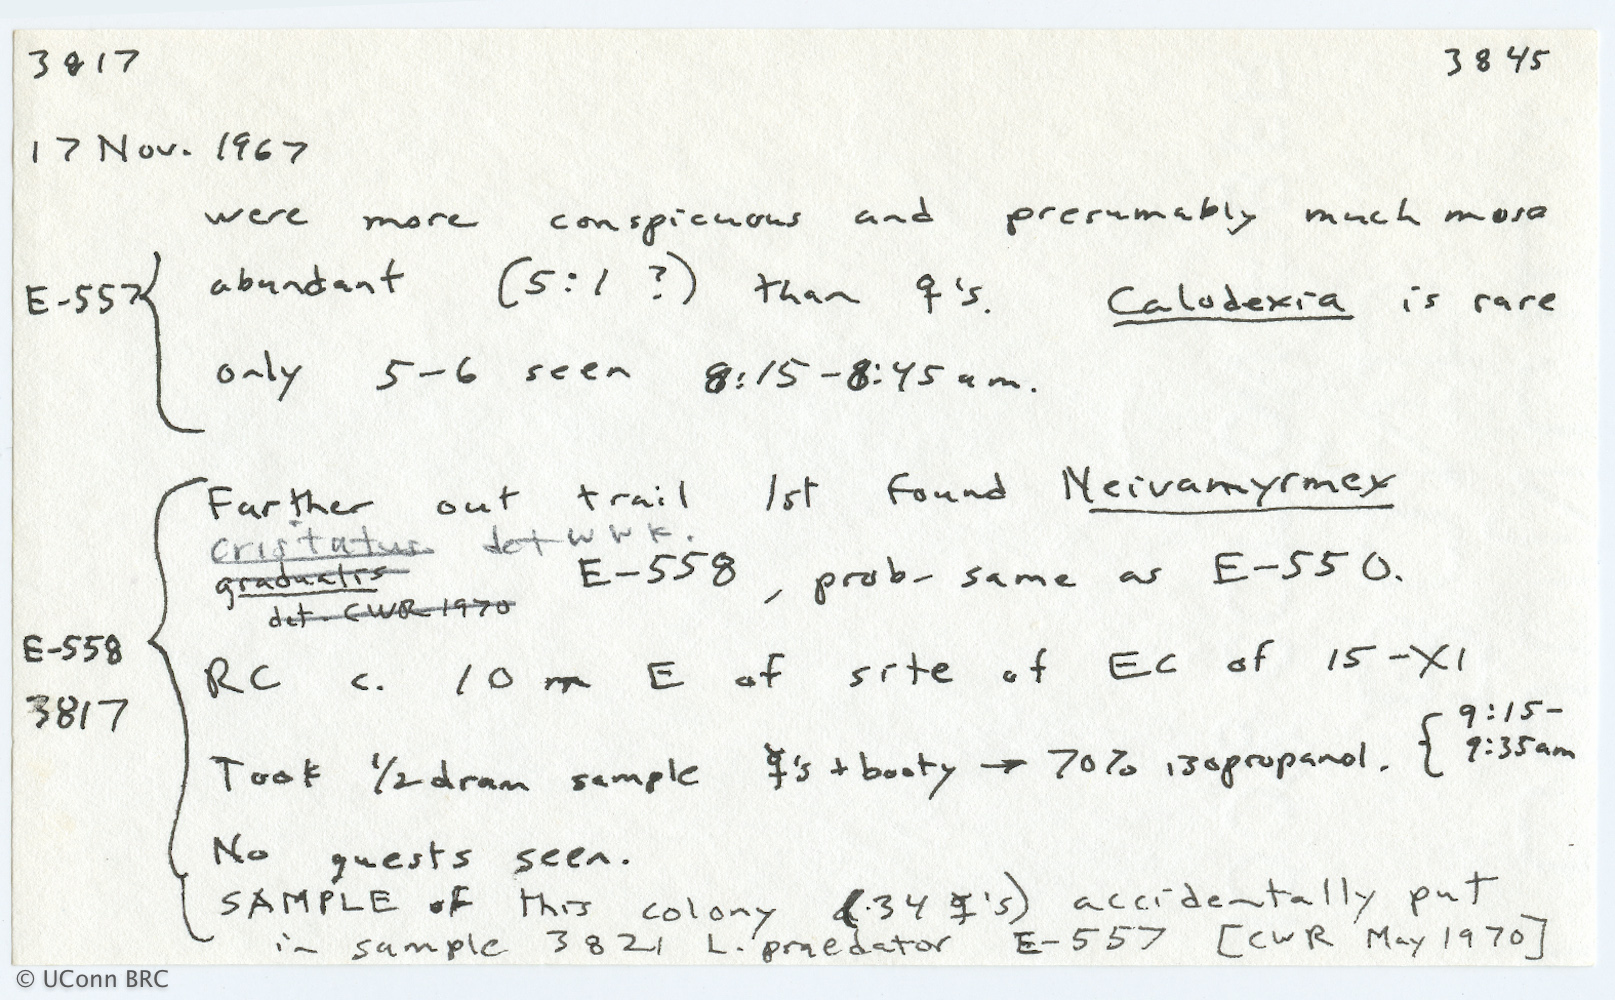 3817 3845
17 Nov. 1967
were more conspicuous and presumably much more
E-557 abundant (5:1 ?) than ♀'s. Calodexia is rare
only 5-6 seen 8:15-8:45 am.
Farther out trail 1st found Neivamyrmex
cristatus det WWK.
gradualis E-558, prob- same as E-550.
det. CWR 1970
E-558
3817
RC c. 10 m E of site of EC of 15-XI
Took 1/2 dram sample ☿'s + booty → 70% isopropanol. { 9:15-
9:35am
No guests seen.
SAMPLE of this colony (.34 ☿'s) accidentally put
in sample 3821 L. praedator E-557 [CWR May 1970]
© UConn BRC